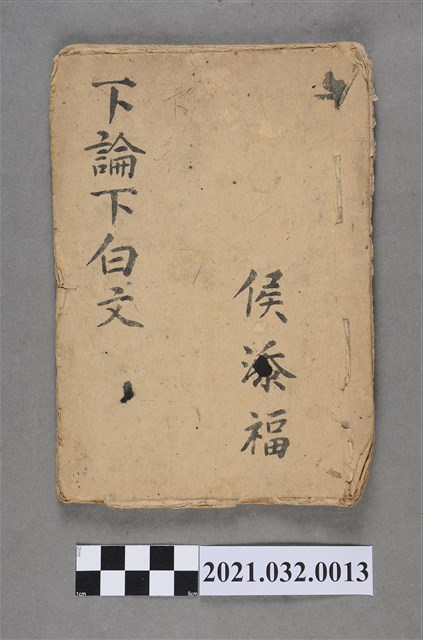 下論下白文
侯添福
2021.032.0013
1cm
5cm